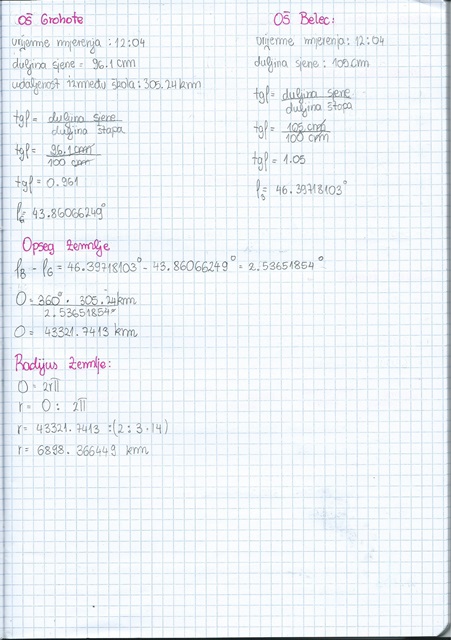 OŠ Grohote
vrijeme mjerenja : 12:04
duljina sjene = 96.1 cm
udaljenost između škola: 305.24 km
tgφ = duljina sjene
duljina štapa
tgφ = 96.1 cm
100 cm
tgφ = 0.961
φG = 43.86066249°
OŠ Belec:
vrijeme mjerenja: 12:04
duljina sjene : 105 cm
tgφ = duljina sjene
duljina štapa
tgφ = 105 cm
100 cm
tgφ = 1.05
φB = 46.39718103°
Opseg Zemlje
φB - φG = 46.39718103° - 43.86066249° = 2.53651854°
O = 360° · 305.24 km
2.53651854°
O = 43321.7413 km
Radijus Zemlje:
O = 2rπ
r = O : 2π
r = 43321.7413 :(2 · 3.14)
r = 6898.366449 km